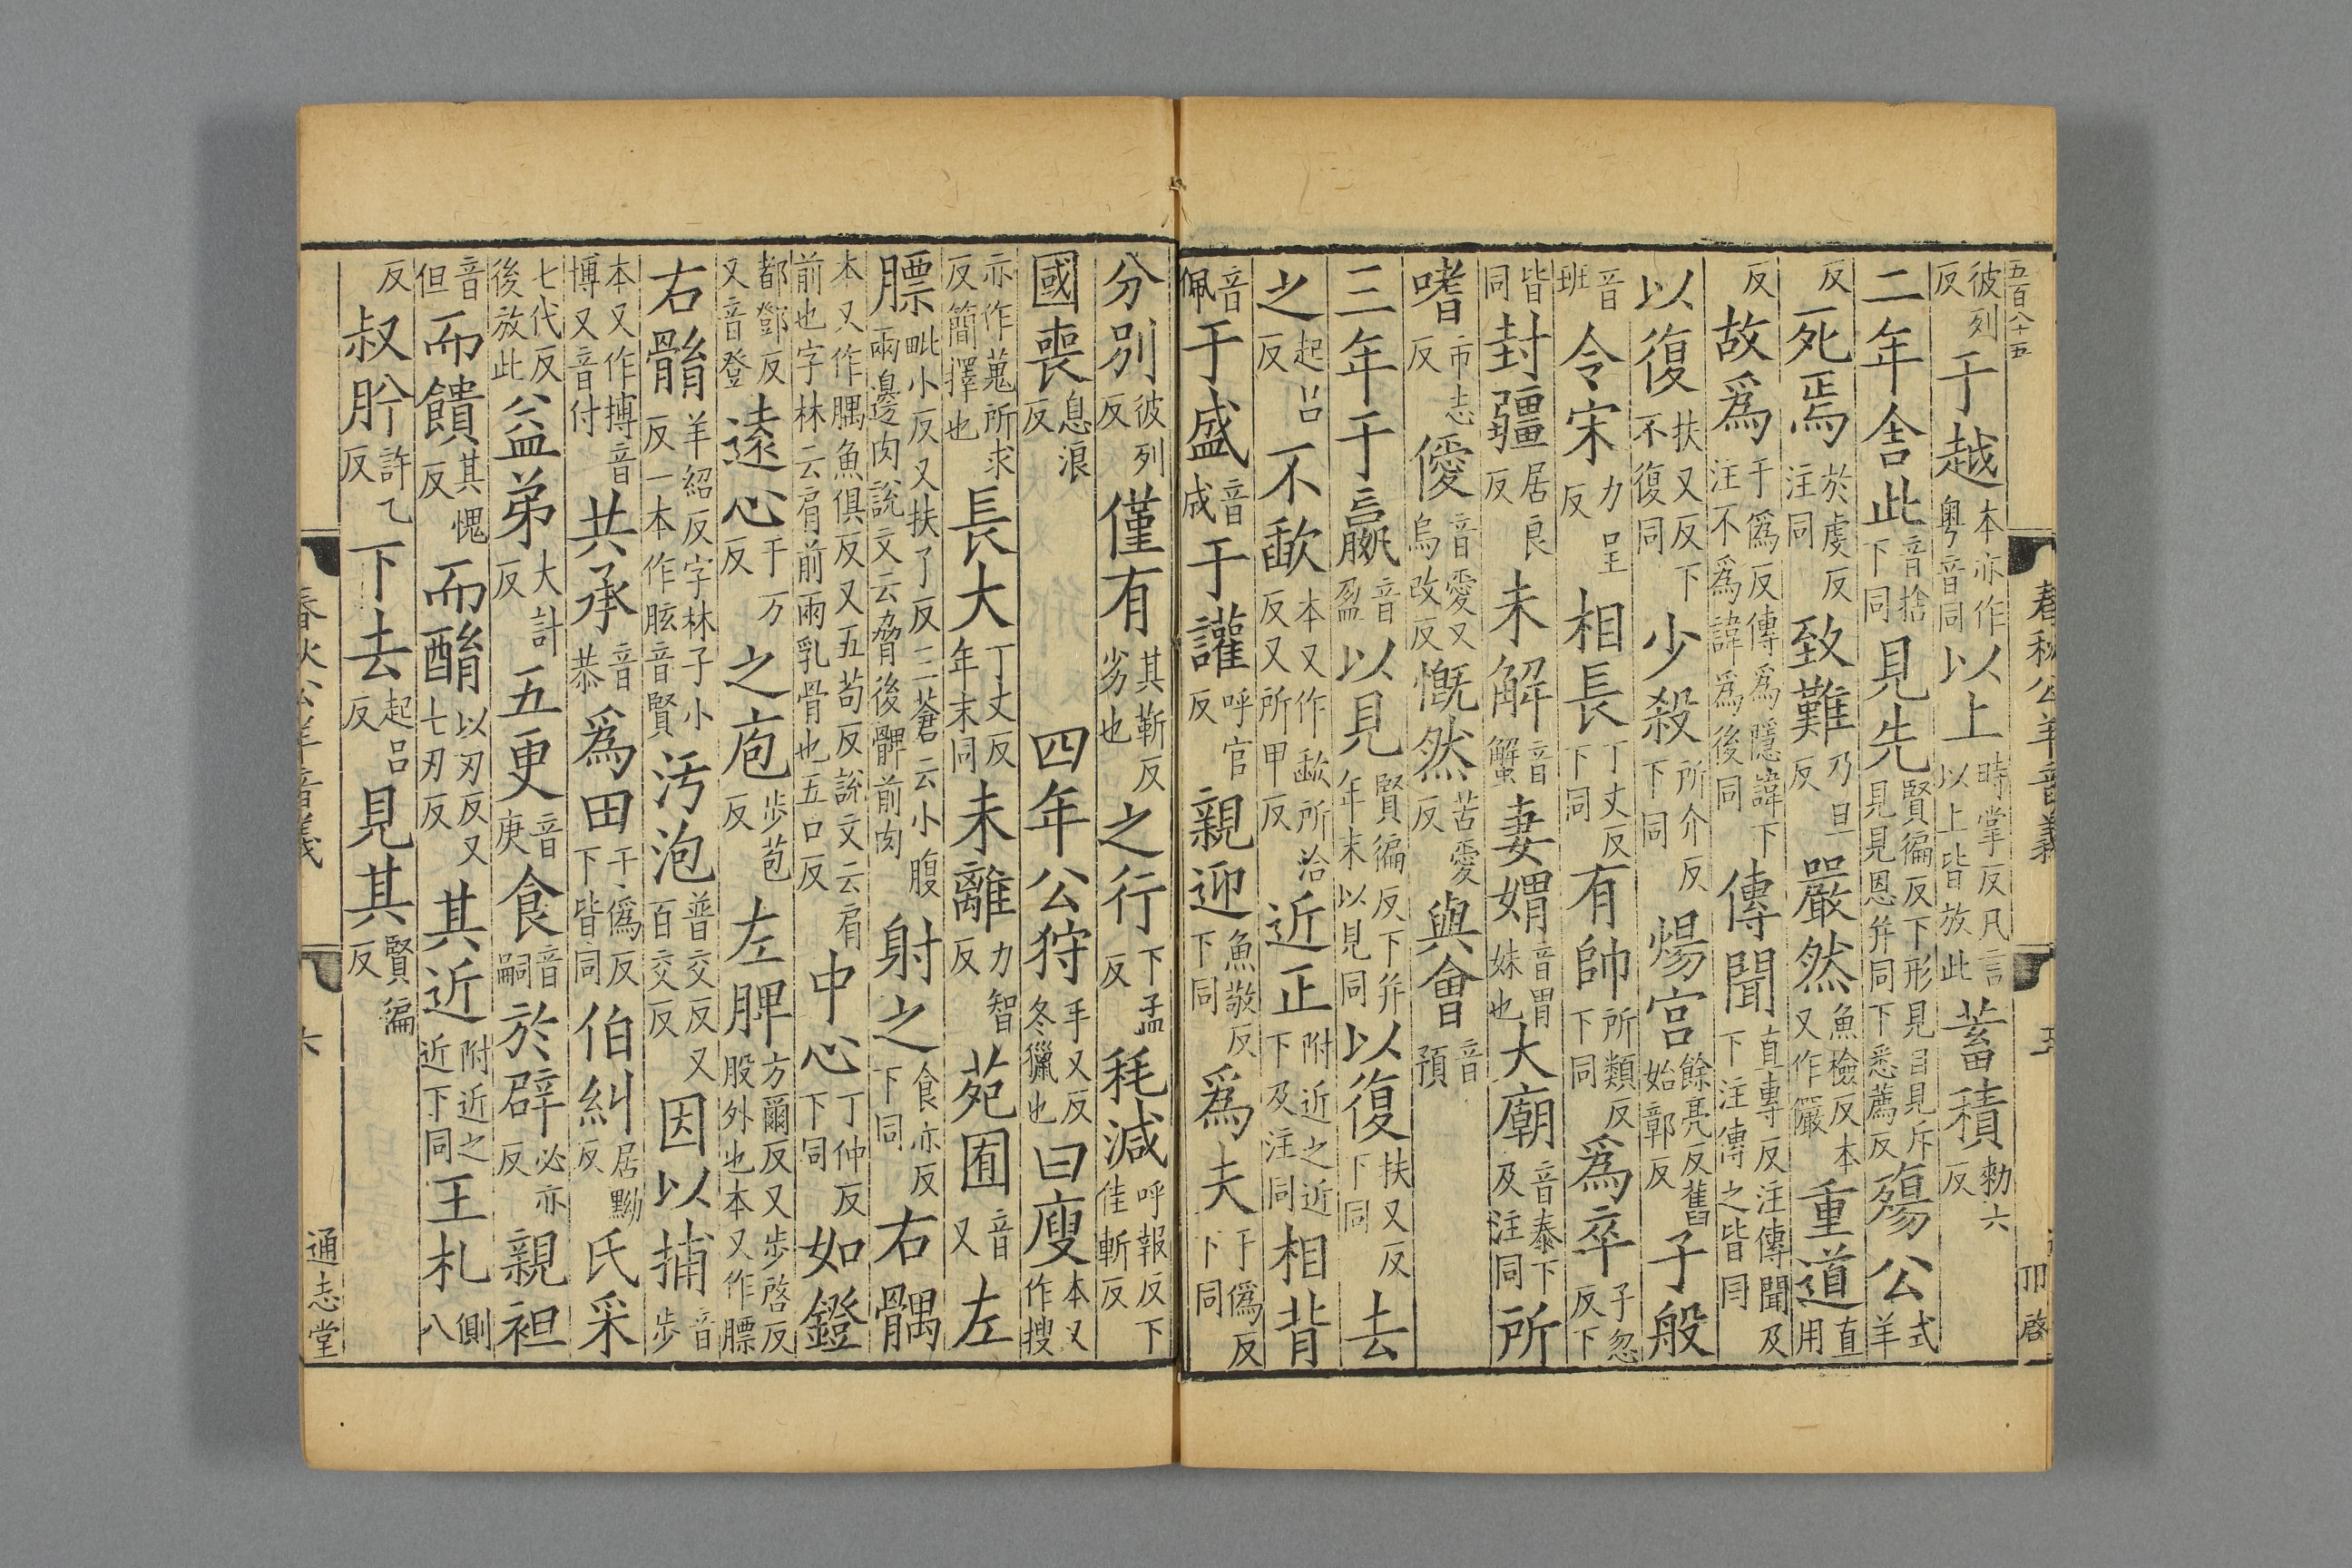 五百八十五
彼列反于越本亦作粵音同以上時掌反凡言以上皆放此蓄積勑六反
二年舍此音捨下同見先賢徧反下形見目見斥見見恩并同下悉薦反殤公式羊
反死焉於虔反注同致難乃旦反嚴然魚檢反本又作儼重道直用
反故爲于僞反傳爲隱諱下注不爲諱爲後同傳聞直專反注傳聞及下注傳之皆同
以復扶又反下不復同少殺所介反下同煬宮餘亮反舊始鄣反子般
音班令宋力呈反相長丁丈反下同有帥所類反下同爲卒子忽反下
皆同封疆居良反未解音蟹妻媦音胃妹也大廟音泰下及注同所
嗜市志反僾音愛又烏改反慨然苦愛反與會音預
三年于嬴音盈以見賢徧反下并年末以見同以復扶又反下同去
之起呂反不歃本又作歃所洽反又所甲反近正附近之近下及注同相背
音佩于盛音成于讙呼官反親迎魚敬反下同爲夫于僞反下同
春秋公羊音義
五
卭啓
分別彼列反僅有其靳反劣也之行下孟反耗減呼報反下佳斬反
國喪息浪反四年公狩手又反冬獵也曰廋本又作搜
亦作蒐所求反簡擇也長大丁丈反年末同未離力智反苑囿音又左
膘毗小反又扶了反三蒼云小腹兩邊肉說文云脅後髀前肉射之食亦反下同右髃
本又作腢魚俱反又五苟反說文云肩前也字林云肩前兩乳骨也五口反中心丁仲反下同如鐙
都鄧反又音登遠心于万反之庖步苞反左脾方爾反又步啓反股外也本又作膘
右䯚羊紹反字林子小反一本作胘音賢污泡普交反又百交反因以捕音步
本又作搏音博又音付共承音恭爲田于僞反下皆同伯糾居黝反氏采
七代反後放此益弟大計反五更音庚食音嗣於辟必亦反親袒
音但而饋其愧反而酳以刃反又七刃反其近附近之近下同王札側八
反叔肸許乙反下去起呂反見其賢徧反
春秋公羊音義
六
通志堂